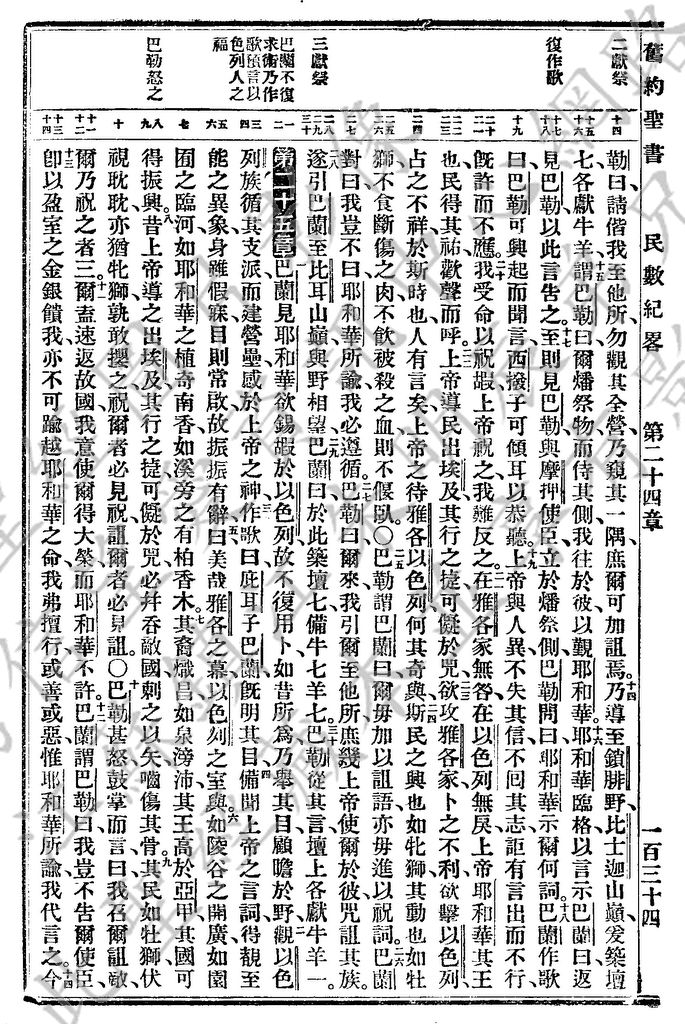 舊約聖書 民數紀畧 第二十四章 一百三十四
二獻祭
復作歌
三獻祭
巴蘭不復
求術乃作
歌預言以
色列人之
福
巴勒怒之
十四
十五
十六
十七
十八
十九
二十
二一
二二
二三
二四
二五
二六
二七
二八
二九
三十
一
二
三
四
五
六
七
八
九
十
十一
十二
十三
十四
勒曰請偕我至他所勿觀其全營乃窺其一隅庶爾可加詛焉十四乃導至鎖腓野比士迦山巔爰築壇
七各獻牛羊十五謂巴勒曰爾燔祭物而侍其側我往於彼以覲耶和華十六耶和華臨格以言示巴蘭曰返
見巴勒以此言告之十七至則見巴勒與摩押使臣立於燔祭側巴勒問曰耶和華示爾何詞十八巴蘭作歌
曰巴勒可興起而聞言西撥子可傾耳以恭聽十九上帝與人異不失其信不回其志詎有言出而不行
既許而不應二十我受命以祝嘏上帝祝之我難反之二一在雅各家無咎在以色列無戾上帝耶和華其王
也民得其祐歡聲而呼二二上帝導民出埃及其行之捷可儗於兕二三欲攻雅各家卜之不利欲擊以色列
占之不祥於斯時也人有言矣上帝之待雅各以色列何其奇與二四斯民之興也如牝獅其動也如牡
獅不食斷傷之肉不飲被殺之血則不偃臥〇二五巴勒謂巴蘭曰爾毋加以詛語亦毋進以祝詞二六巴蘭
對曰我豈不曰耶和華所諭我必遵循二七巴勒曰爾來我引爾至他所庶幾上帝使爾於彼咒詛其族
二八遂引巴蘭至比耳山巔與野相望二九巴蘭曰於此築壇七備牛七羊七三十巴勒從其言壇上各獻牛羊一
第二十五章一巴蘭見耶和華欲錫嘏於以色列故不復用卜如昔所為乃舉其目顧瞻於野二觀以色
列族循其支派而建營壘感於上帝之神三作歌曰庇耳子巴蘭既明其目四備聞上帝之言詞得覩至
能之異象身雖假寐目則常啟故振振有辭曰五美哉雅各之幕以色列之室與六如陵谷之開廣如園
囿之臨河如耶和華之植奇南香如溪旁之有柏香木七其裔熾昌如泉滂沛其王高於亞甲其國可
得振興八昔上帝導之出埃及其行之捷可儗於兕必并吞敵國刺之以矢嚙傷其骨九其民如牡獅伏
視耽耽亦猶牝獅孰敢攖之祝爾者必見祝詛爾者必見詛〇十巴勒甚怒鼓掌而言曰我召爾詛敵
爾乃祝之者三十一爾盍速返故國我意使爾得大榮而耶和華不許十二巴蘭謂巴勒曰我豈不告爾使臣
十三卽以盈室之金銀饋我亦不可踰越耶和華之命我弗擅行或善或惡惟耶和華所諭我代言之十四今